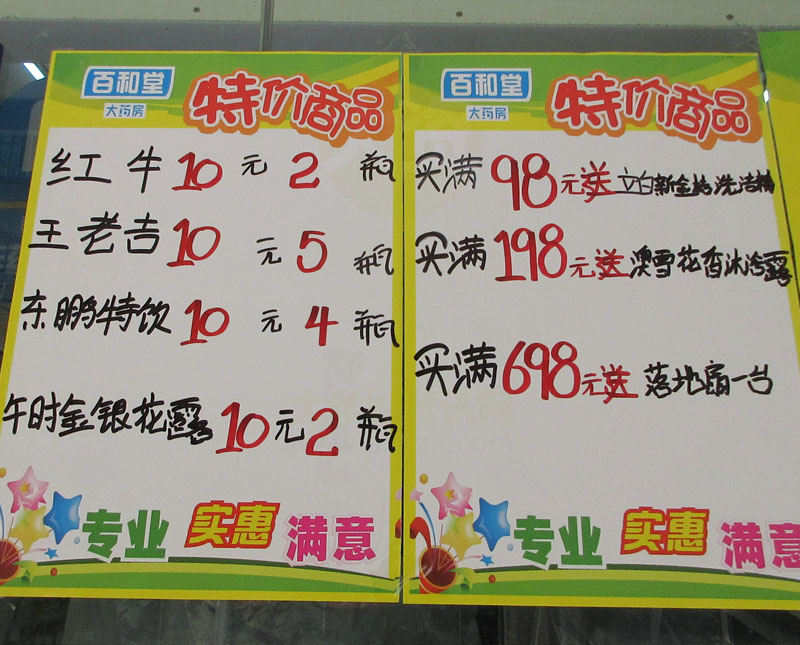 百和堂
大药房
特价商品
红牛10元2瓶
王老吉10元5瓶
东鹏特饮10元4瓶
午时金银花露10元2瓶
专业 实惠 满意
百和堂
大药房
特价商品
买满98元送立白新金桔洗洁精
买满198元送澳雪花香沐浴露
买满698元送落地扇一台
专业 实惠 满意